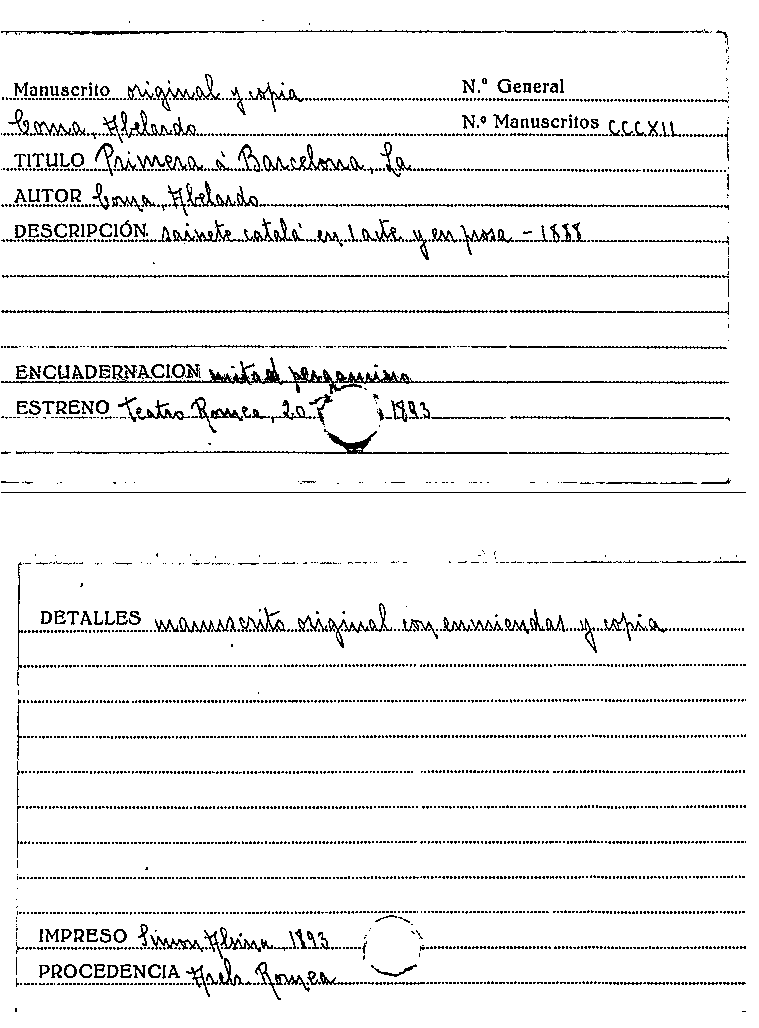 Manuscrito original y copia N.º General
Coma, Abelardo N.º Manuscritos CCCXII
TITULO Primera á Barcelona, La
AUTOR Coma, Abelardo
DESCRIPCIÓN sainete catalá en 1 acte y en prosa - 1888
ENCUADERNACION mitad pergamino
ESTRENO Teatro Romea, 20 1893
DETALLES manuscrito original con enmiendas y copia
IMPRESO Simon Alsina 1893
PROCEDENCIA Arch. Romea